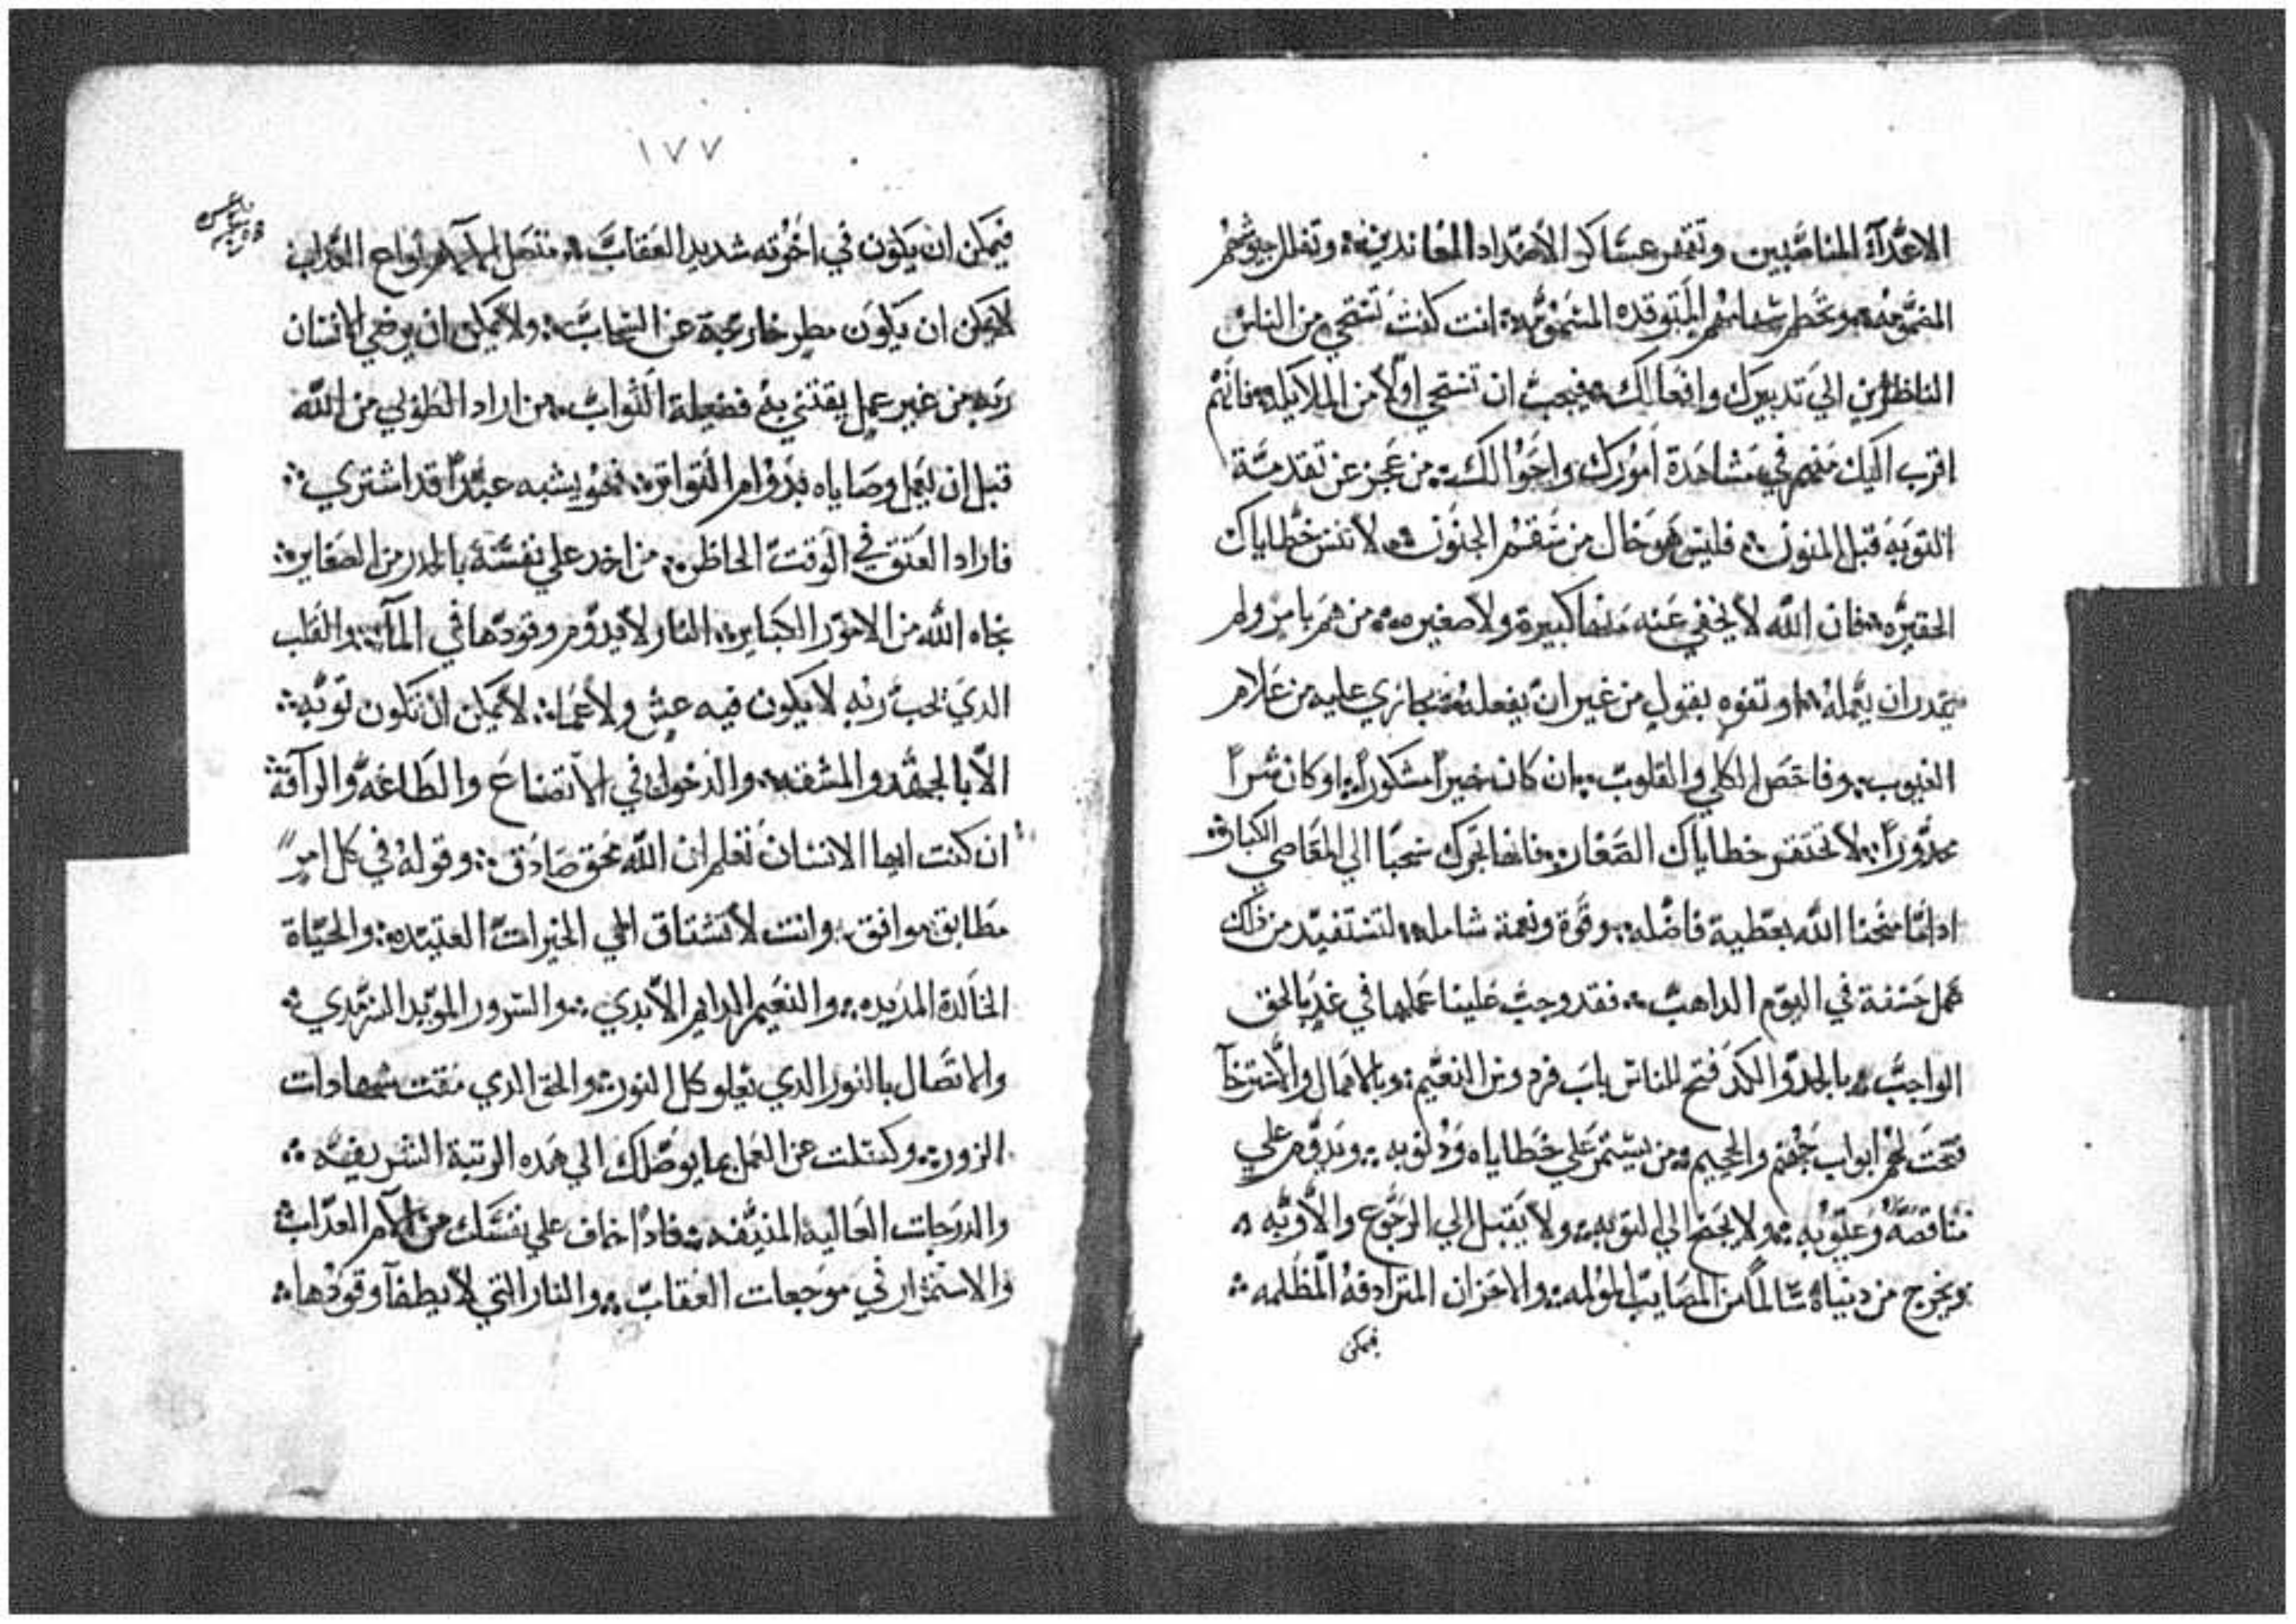 الاعدآء المناصبين وتقهر عساكر الأضداد المعاندين؛ وتفلل جيوشهم
المتوقده انت كنت تستحي من الناس
الناظرين الي تدبيرك وافعالك؛ فيجب ان تستحي اولاً من الملايكه؛ فانهم
اقرب اليك منهم في مشاهدة أمورك واحوالك؛ من عجز عن تقدمة
التوبه قبل المنون؛ فليس هو خال من سقم الجنون؛ لا تنس خطاياك
الحقيره؛ فان الله لا يخفي عنه منها كبيرة ولا صغيره؛ من هم بامر ولم
يقدر ان يتمله او تفوه بقول من غير ان يفعله فيجازي عليه من علام
الغيوب؛ وفاحص الكلي والقلوب؛ ان كان خيراً مشكوراً؛ او كان شراً
محدوراً؛ لا تحتقر خطاياك الصغار؛ فانها تجرك سحباً الي المعاصي الكبار؛
اذا ما منحنا الله بعطية فاضله؛ وقوة ونعمة شامله؛ لتستفيد من ذلك
عمل حسنة في اليوم الداهب؛ فقد وجب علينا عملها في غد بالحق
الواجب؛ بالجد والكد فتح للناس باب فردوس النعيم؛ وبالاهمال والاسترخآ
فتحت لهم ابواب جهنم والجحيم؛ من يستمر علي خطاياه وذنوبه؛ ويدوم علي
مناقصه وعيوبه؛ ولا يجنح الي التوبه؛ ولا يقبل الي الرجوع والأوبه؛
ويخرج من دنياه سالماً من المصايب المولمه؛ والاحزان المترادفه المظلمه؛
فيمكن
١٧٧
فيمكن ان يكون في اخرته شديد العقاب؛ متصل انواع العداب
لا يمكن ان يكون مطر خارجة عن السحاب؛ ولا يمكن ان يرضي الانسان
ربه من غير عمل يقتني به فضيلة الثواب؛ من اراد الطوبي من الله
قبل ان يعمل وصاياه بدوام التواتر؛ فهو يشبه عبداً قد اشتري؛
فاراد العتق في الوقت الحاظر؛ من اخد علي نفسه بالحدر من الصغاير؛
نجاه الله من الامور الكباير؛ النار لا يدوم وقودها في المآء؛ والقلب
الدي يحب ربه لا يكون فيه غش ولا عما؛ لا يمكن ان تكون توبه؛
الا بالجهد والمشقه؛ والدخول في الاتضاع والطاعه والرآفة؛
ان كنت ايها الانسان تعلم ان الله محق صادق؛ وقوله في كل امر
مطابق موافق؛ وانت لا تشتاق الي الخيرات العتيده؛ والحياة
الخالدة المديده؛ والنعيم الدايم الأبدي؛ والسرور الموبد السرمدي؛
والاتصال بالنور الدي يعلو كل النور؛ والحق الدي مقت شهادات
الزور؛ وكسلت عن العمل بما يوصلك الي هده الرتبة الشريفه؛
والدرجات العاليه المنيفه؛ فادا خاف علي نفسك من آلام العداب
والاستمرار في موجعات العقاب؛ والنار التي لا يطفآ وقودها؛